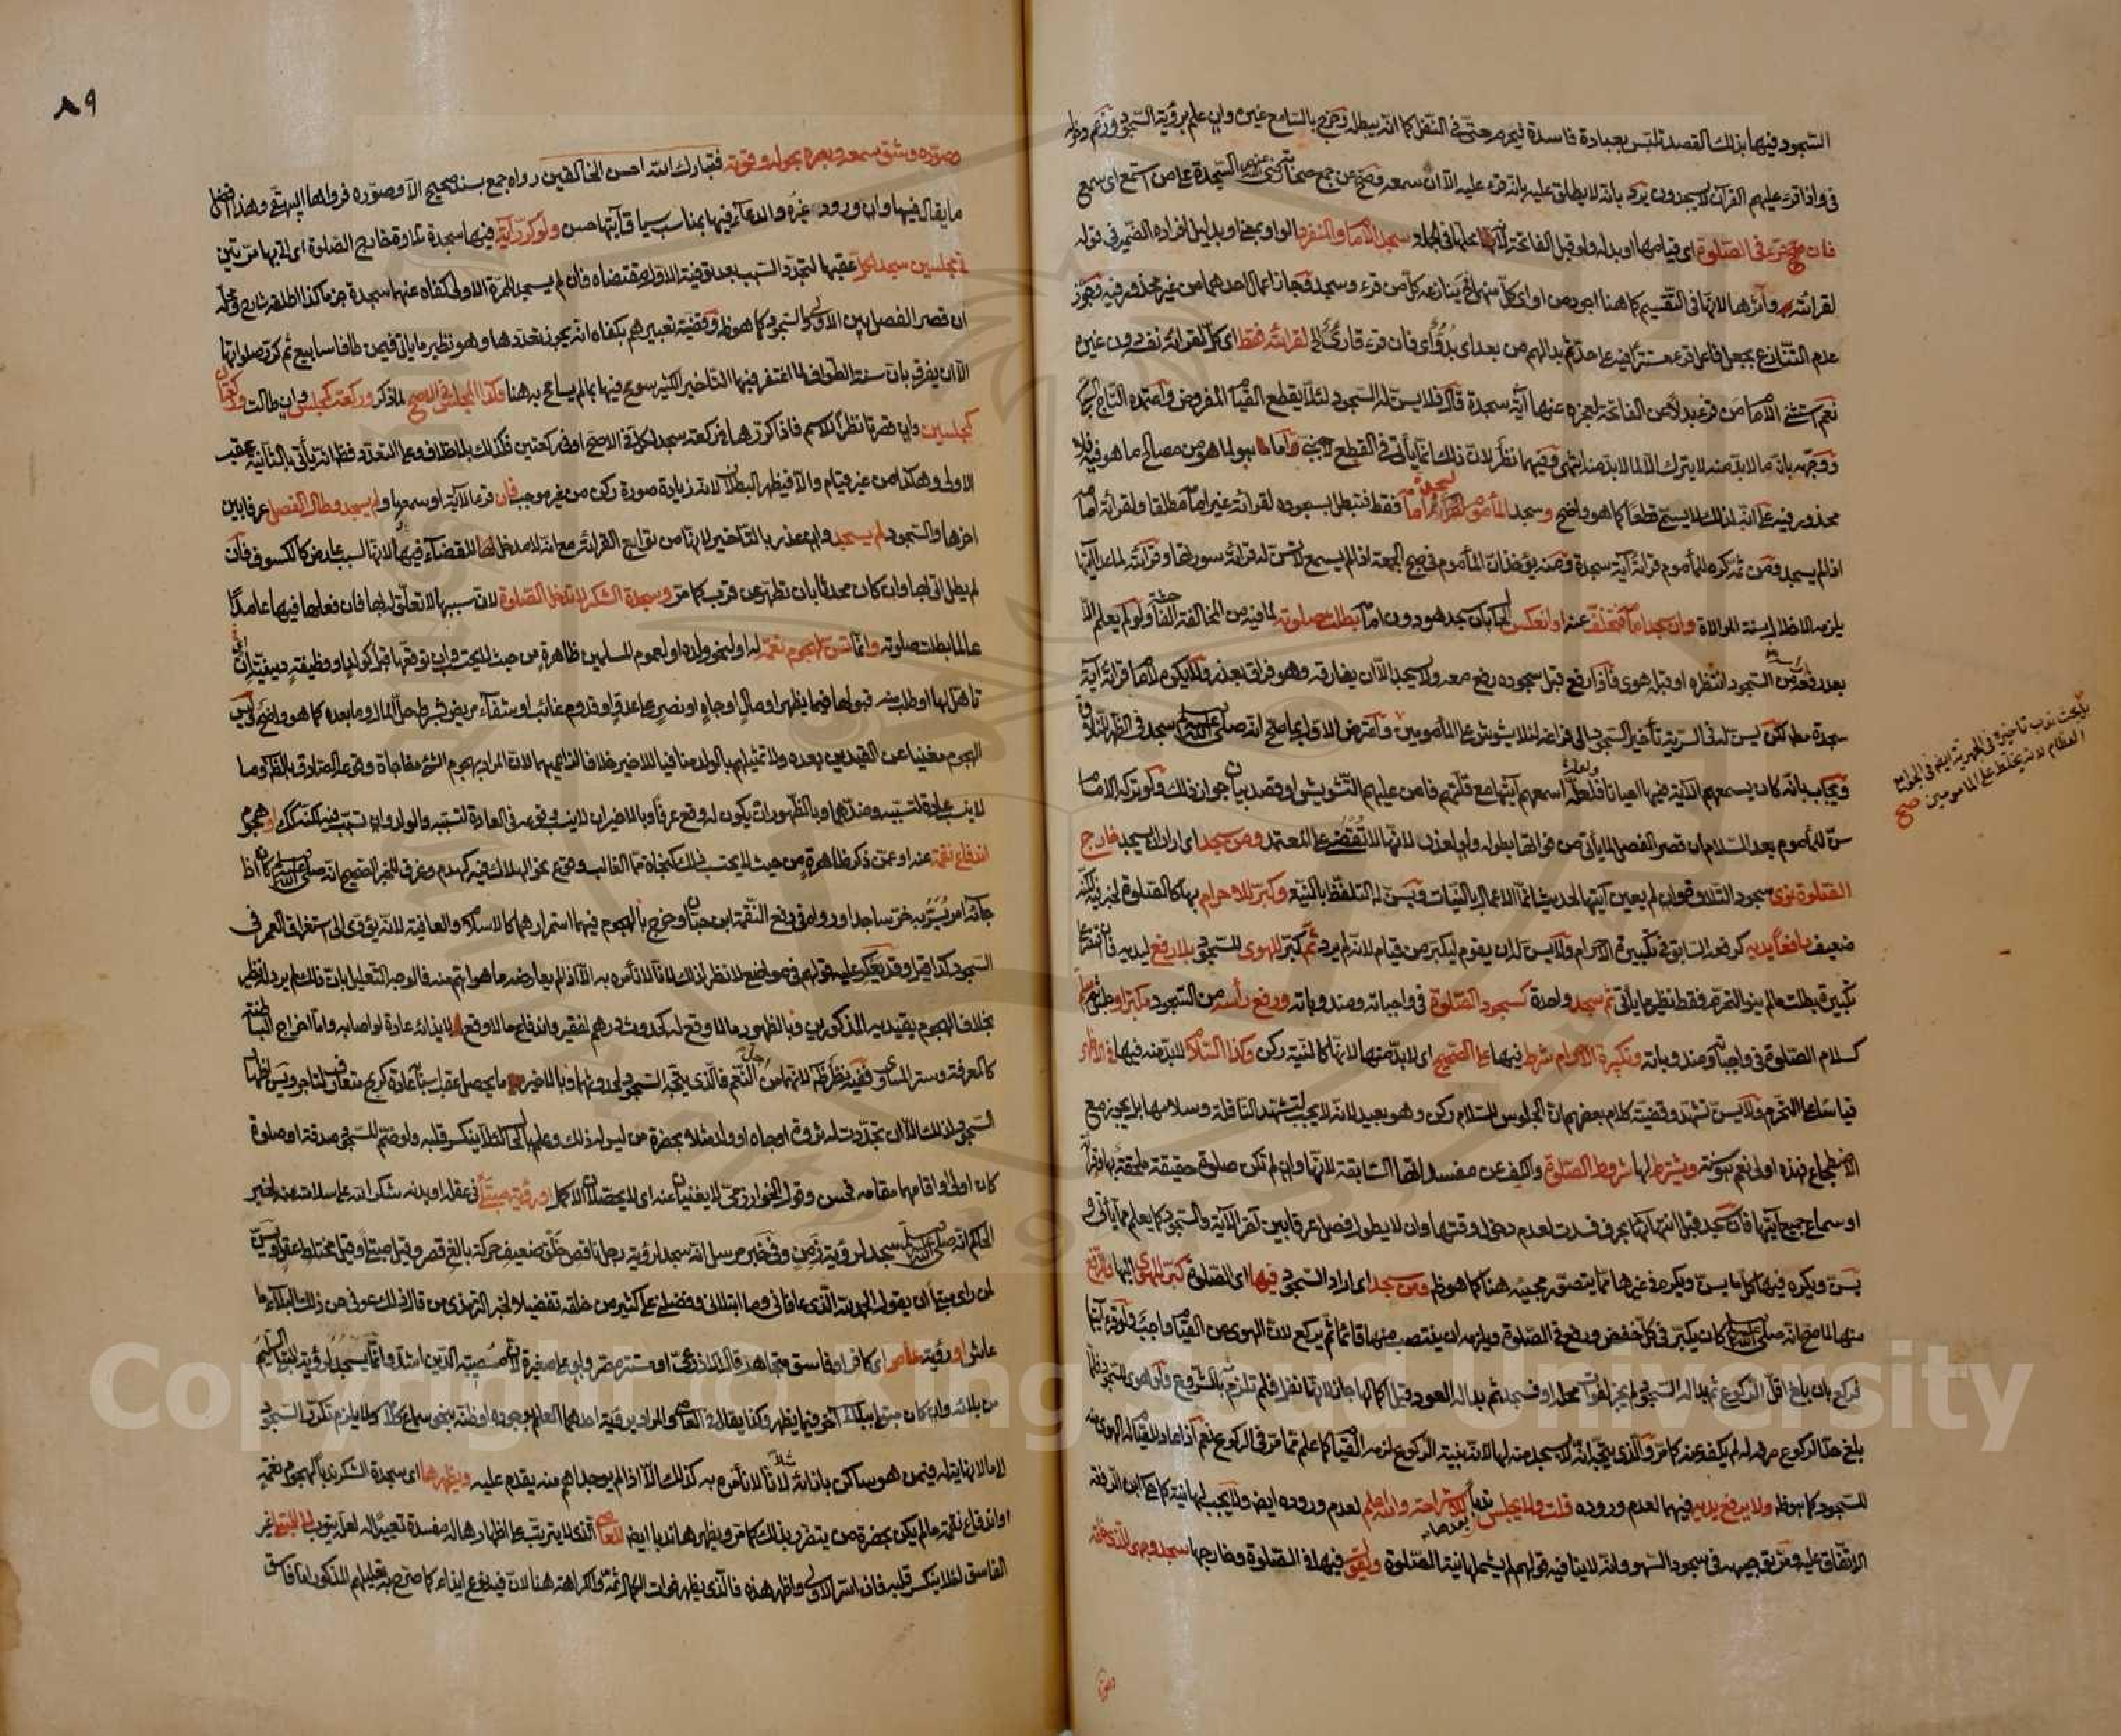 السجود فيها بذلك القصد تلبس بعبادة فاسدة فيحرم حتى في النفل كما انه يبطله وخرج بالسامع غيره وان علم برؤية السجود وزعم دخوله
في واذا قرئ عليهم القرآن لا يسجدون يرد بانه لا يطلق عليه بانه قرئ عليه الا ان سمعه وصح عن جمع صحابة رضي الله عنهم السجدة على من استمع اي سمع
فان قرئ في الصلوة اي قيامها او بدله ولو قبل الفاتحة لانه محلها في الجملة سجد الامام والمنفرد الواو بمعنى او بدليل افراده الضمير في قوله
لقراءته وآثرها لانها في التقسيم كما هنا اجود من او اي كل منهما
عدم التنازع بجعل فاعل قرئ مستترا فيه على حد ثم بدا لهم من بعد اي بدو اي فان قرئ قارئ لقراءته فقط اي كل لقراءة نفسه دون غيره
نعم استثنى الامام من قرء بدلا عن الفاتحة لعجزه عنها آية سجدة قال فلا يسن له السجود لئلا يقطع القيام المفروض واعتمده التاج السبكي
ووجهه بان ما لا بد منه لا يترك الا لما لا بد منه انتهى وفيهما نظر لان ذلك انما يأتي في القطع لاجنبي واما ما هو من مصالح ما هو فيه فلا
محذور فيه على انه لذلك لا يسمى قطعا كما هو واضح وسجد المأموم لسجدة امامه فقط فتبطل بسجوده لقراءة غير امامه مطلقا ولقراءة امامه
اذا لم يسجد ومن ثم كره للمأموم قراءة آية سجدة ومنه يؤخذ ان المأموم في صبح الجمعة اذا لم يسمع لا تسن له قراءة سورتها وقراءته لما عدا آيتها
يلزمه الاخلال بسنة الموالاة وان سجد امامه فتخلف عنه او انعكس الحال بان سجد هو دون امامه بطلت صلوته لما فيه من المخالفة الفاحشة ولو لم يعلم الا
بعد رفعه من السجود انتظره او قبله هوى فاذا رفع قبل سجوده رفع معه ولا يسجد الا ان يفارقه وهو فراق بعذر ولا يكره للامام قراءة آية
سجدة مطلقا لكن يسن له في السرية تأخير السجود الى فراغه لئلا يشوش على المأمومين واعترض الاول بما صح انه صلى الله عليه وسلم سجد في الظهر للتلاوة
ويجاب بانه كان يسمعهم الآية فيها احيانا فلعله اسمعهم آيتها مع قلتهم فامن عليهم التشويش او قصد بيان جواز ذلك ولو تركه الامام
سن للمأموم بعد السلام ان قصر الفصل لما يأتي من فواتها بطوله ولو لعذر لانها لا تقضى على المعتمد ومن سجد اي اراد ان يسجد خارج
الصلوة نوى سجود التلاوة وان لم يعين آيتها لحديث انما الاعمال بالنيات ويسن له التلفظ بالنية وكبر للاحرام بها كالصلوة لخبر فيه لكنه
ضعيف رافعا يديه كرفعه السابق في تكبيرة الاحرام ولا يسن له ان يقوم ليكبر من قيام لانه لم يرد ثم كبر للهوى للسجود بلا رفع ليديه فان اقتصر على
تكبيرة بطلت ما لم ينو التحرم فقط نظير ما يأتي ثم سجد واحدة كسجود الصلوة في واجباته ومندوباته ورفع رأسه من السجود مكبرا وسلم
كسلام الصلوة في واجباته ومندوباته وتكبيرة الاحرام شرط فيها على الصحيح اي لا بد منها لانها كالنية ركن وكذا السلام لا بد منه فيها في الاظهر
قياسا على التحرم ولا يسن تشهد وقضية كلام بعضهم ان الجلوس للسلام ركن وهو بعيد لانه لا يجب لتشهد النافلة وسلامها بل يجوز مع
الاضطجاع فهذه اولى نعم هو سنة ويشترط لها شروط الصلوة والكف عن مفسداتها السابقة لانها وان لم تكن صلوة حقيقة ملحقة بها وقراءة
او سماع جميع آيتها فان سجد قبل انتهائها بحرف فسدت لعدم دخول وقتها وان لا يطول فصل عرفا بين آخر الآية والسجود كما يعلم مما يأتي و
يسن ويكره فيها كل ما يسن ويكره في غيرها مما يتصور مجيئه هنا كما هو ظاهر ومن سجد اي اراد السجود فيها اي الصلوة كبر للهوى اليها وللرفع
منها لما صح انه صلى الله عليه وسلم كان يكبر في كل خفض ورفع في الصلوة ويلزمه ان ينتصب منها قائما ثم يركع لان الهوى من القيام واجب ولو قرء آيتها
فركع بان بلغ اقل الركوع ثم بدا له السجود لم يجز لفوات محله او فسجد ثم بدا له العود قبل اكمالها جاز لانها نفل فلم تلزم بالشروع ولو هوى للسجود فلما
بلغ حد الركوع صرفه له لم يكف عنه كما مر والذي يتجه انه لا يسجد منه لها لانه بنية الركوع لزمه القيام كما علم مما مر في الركوع نعم اذا عاد للقيام له الهوى منه
للسجود كما هو ظاهر ولا يرفع يديه فيهما لعدم وروده قلت ولا يجلس ندبا بعدها للاستراحة والله اعلم لعدم وروده ايضا ولا يجب لها نية كما حكى ابن الرفعة
الاتفاق عليه ومر توجيهه في سجود السهو وانه لا ينافيه قولهم لم يشملها نية الصلوة ويقول فيها في الصلوة وخارجها سجد وجهي للذي خلقه
يبحث ندب تأخيره في الجهرية ايضا في الجوامع
العظام لانه يخلط على المأمومين صح
٨٩
وصوره وشق سمعه وبصره بحوله وقوته فتبارك الله احسن الخالقين رواه جمع بسند صحيح الا وصوره فرواها البيهقي وهذا افضل
ما يقال فيها وان ورد غيره والدعاء فيها بمناسب سياق آيتها حسن ولو كرر آية فيها سجدة تلاوة خارج الصلوة اي اتى بها مرتين
في مجلسين سجد لكل عقبها لتجدد السبب بعد توفية الاول مقتضاه فان لم يسجد للمرة الاولى كفاه عنهما سجدة جزما كذا اطلقه شارح ومحله
ان قصر الفصل بين الاولى والسجود كما هو ظاهر وقضية تعبيرهم بكفاه انه يجوز تعددها وهو نظير ما يأتي فيمن طاف اسابيع ثم كرر صلواتها
الا ان يفرق بان سنة الطواف لما اغتفر فيها التأخير الكثير سومح فيها بما لم يسامح به هنا وكذا المجلس في الاصح لما ذكر وركعة كمجلس وان طالت وركعتان
كمجلسين وان قصرتا نظرا للاسم فاذا كررها في ركعة سجد لكل في الاصح او في ركعتين فكذلك بلا خلاف وعلى التعدد فظاهر انه يأتي بالثانية عقب
الاولى وهكذا من غير قيام والا فيظهر البطلان لانه زيادة صورة ركن من غير موجب فان قرء الآية او سمعها ولم يسجد وطال الفصل عرفا بين
آخرها والسجود لم يسجد وان عذر بالتأخير لانها من توابع القراءة مع انه لا مدخل للقضاء فيها لانها لسبب عارض كالكسوف فان
لم يطل اتى بها وان كان محدثا بان تطهر عن قرب كما مر وسجدة الشكر لا تدخل الصلوة لان سببها لا تعلق له بها فان فعلها فيها عامدا
عالما بطلت صلوته وانما تسن لهجوم نعمة له او لنحو ولده او لعموم المسلمين ظاهرة من حيث لا يحتسب وان توقعها قبل كولد او وظيفة دينية ان
تأهل لها او طلب منه قبولها فيما يظهر او مال او جاه او نصر على عدو او قدوم غائب او شفاء مريض بشرط حل المال وما بعده كما هو واضح وليس
الهجوم مغنيا عن القيدين بعده ولا تمثيلهم بالولد منافيا للاخير خلافا لزاعميهما لان المراد بهجوم الشيء مفاجأة وقوعه الصادق بالظاهر وما
لا ينسب عادة لتسببه وضدهما وبالظهور ان يكون له وقع عرفا وبالاخير ان لا ينسب وقوعه في العادة لتسببه والولد وان تسبب فيه لكنه كذلك او هجوم
اندفاع نقمة عنه او عمن ذكر ظاهرة من حيث لا يحتسب ذلك كنجاة مما الغالب وقوع نحو الهلاك فيه كهدم وغرق للخبر الصحيح انه صلى الله عليه وسلم كان اذا
جاءه امر يسر به خر ساجدا ورواه في دفع النقمة ابن حبان وخرج بالهجوم فيهما استمرارهما كالاسلام والعافية لانه يؤدي الى استغراق العمر في
السجود كذا قيل وقد يعكر عليه قولهم في مواضع لا نظر لذلك لانا لا نأمره به الا اذا لم يعارضه ما هو اهم منه فالوجه التعليل بان ذلك لم يرد له نظير
بخلاف الهجوم بقيديه المذكورين وبالظهور ما لا وقع له كحدوث درهم لفقير واندفاع ما لا وقع له لا يذائه عادة لو اصابه واما اخراج الباطنة
كالمعرفة وستر المساوي ففيه نظر ظاهر لانهما من اجل النعم فالذي يتجه السجود لحدوثهما وبالاخير ما يحصل عقب اسبابه عادة كربح متعارف لتاجر ويسن اظهار
السجود لذلك الا ان تجددت له ثروة او جاه او ولد مثلا بحضرة من ليس له ذلك وعلم بالحال لئلا ينكسر قلبه ولو ضم للسجود صدقة او صلوة
كان اولى او اقامها مقامه فحسن وقول الخوارزمي لا يغنيان عنه اي لا يحصلان الاكمل او رؤية مبتلى في عقله او بدنه شكرا لله على سلامته منه لخبر
الحاكم انه صلى الله عليه وسلم سجد لرؤية زمن وفي خبر مرسل انه سجد لرؤية رجل ناقص خلق ضعيف حركة بالغ قصر وقيل مبتلى وقيل مختلط عقل ويسن
لمن رأى مبتلى ان يقول الحمد لله الذي عافاني وما ابتلاني وفضلني على كثير من خلقه تفضيلا لخبر الترمذي من قال ذلك عوفي من ذلك البلاء ما
عاش او رؤية عاص اي كافر او فاسق متجاهر قال الاذرعي او مستتر مصر ولو على صغيرة لان مصيبة الدين اشد وانما يسجد لرؤية المبتلى السليم
من بلائه وان كان مبتلى ببلاء آخر فيما يظهر وكذا يقال في العاصي والمراد برؤية احدهما العلم بوجوده او ظنه بنحو سماع كلامه ولا يلزم تكرر السجود
الى ما لا نهاية له فيمن هو ساكن بازائه مثلا لانا لا نأمره به كذلك الا اذا لم يوجد اهم منه يقدم عليه ويظهرها اي سجدة الشكر ندبا لهجوم نعمة
او اندفاع نقمة ما لم يكن بحضرة من يتضرر بذلك كما مر ويظهرها ندبا ايضا للعاصي الذي لا يترتب على اظهارها له مفسدة تعييرا له لعله يتوب لا للمبتلى غير
الفاسق لئلا ينكسر قلبه فان اسر الاولى واظهر هذه فالذي يظهر فوات الكمال ثمة والكراهة هنا لان فيه نوع ايذاء كما صرح به تعليلهم المذكور اما فاسق